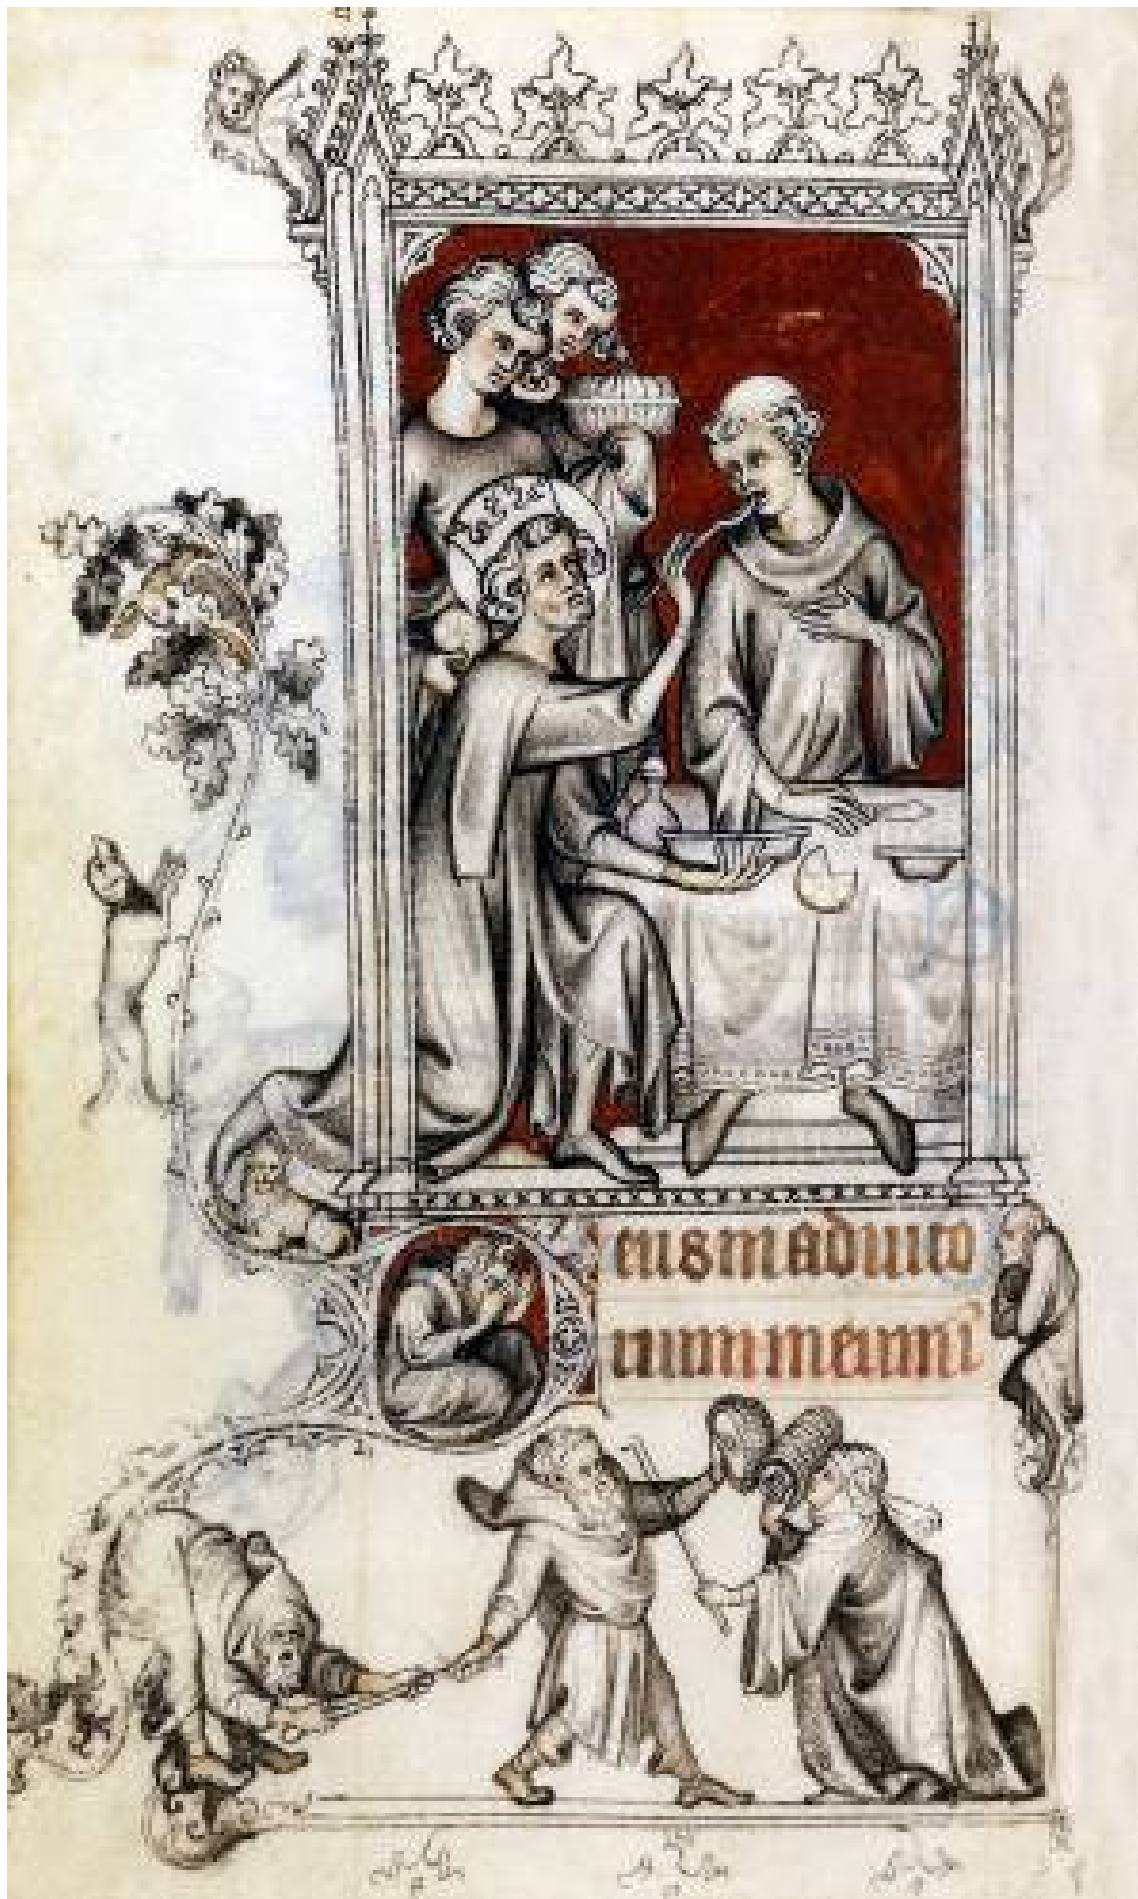 Deus in adiuto
rium meum ī